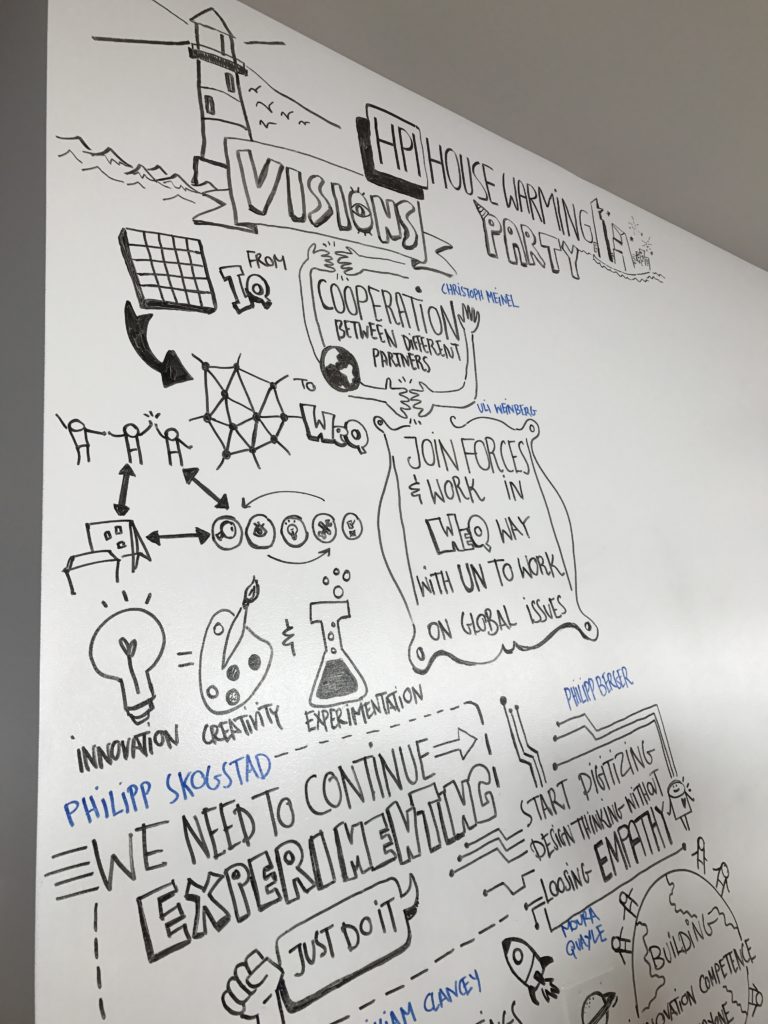 HPI HOUSE WARMING
PARTY
VISIONS
FROM
IQ
TO
WEQ
CHRISTOPH MEINEL
COOPERATION
BETWEEN DIFFERENT
PARTNERS
ULI WEINBERG
JOIN FORCES
& WORK IN
WEQ WAY
WITH UN TO WORK
ON GLOBAL ISSUES
=
&
INNOVATION CREATIVITY EXPERIMENTATION
PHILIPP SKOGSTAD
WE NEED TO CONTINUE
EXPERIMENTING
JUST DO IT
PHILIPP BERGER
START DIGITIZING
DESIGN THINKING WITHOUT
LOOSING EMPATHY
MOURA
QUAYLE
BUILDING
COMPETENCE
CLANCEY